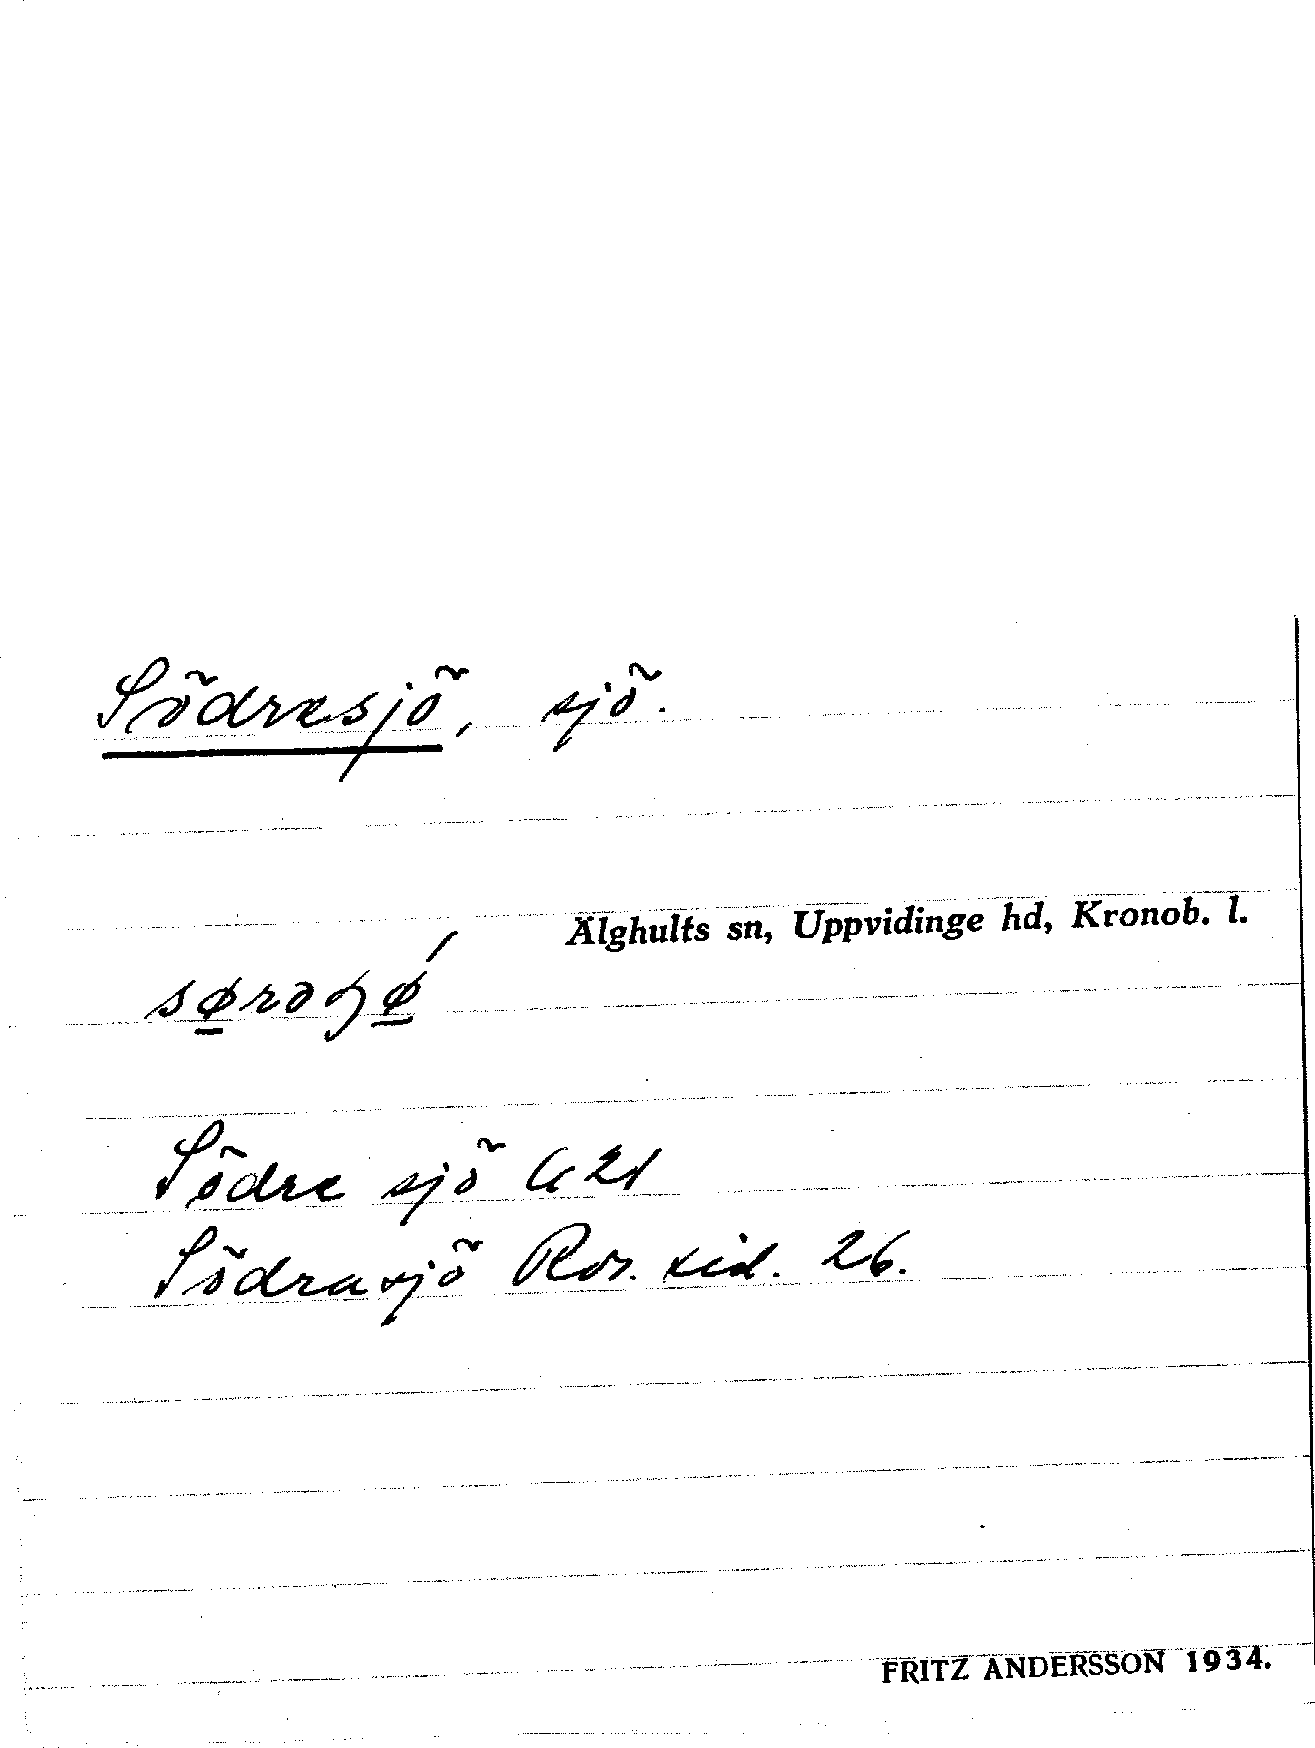 Södresjö, sjö.
Älghults sn, Uppvidinge hd, Kronob. l.
Södre sjö G 21
Södrasjö Ros. sid. 26.
FRITZ ANDERSSON 1934.